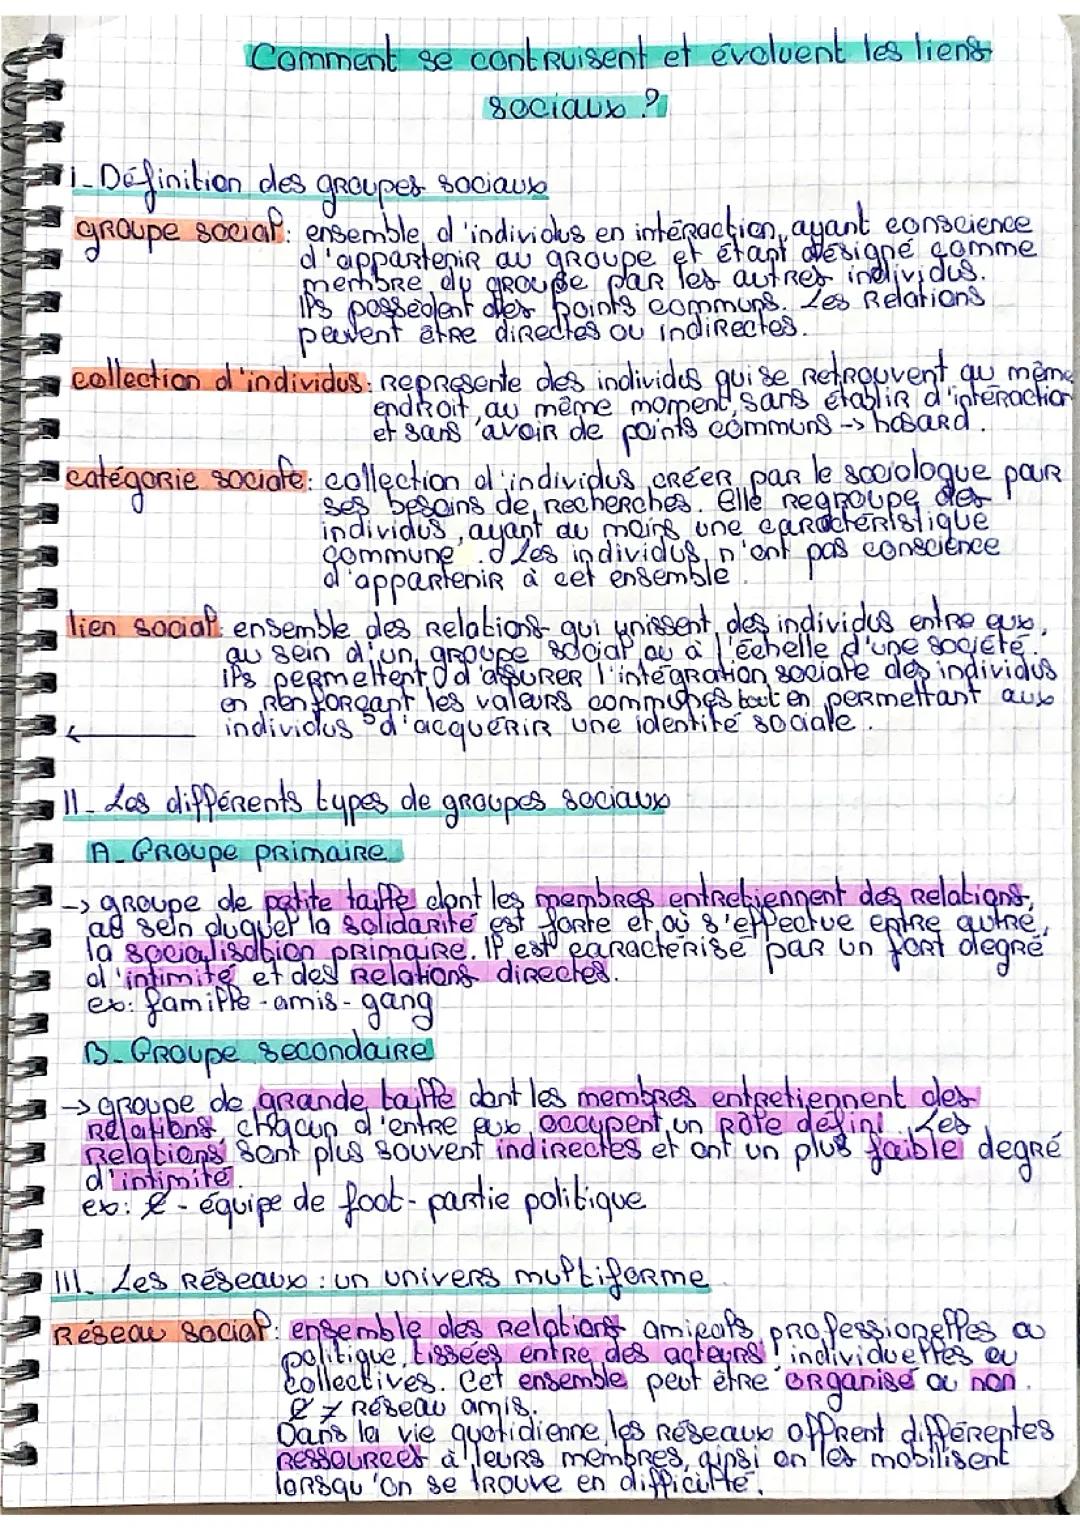 Comment se contruisent et évoluent les liens
sociaux ?
I- Définition des groupes sociaux
groupe social: ensemble d'individus en intéraction, ayant conscience
d'appartenir au groupe et étant désigné comme
membre du groupe par les autres individus.
ils possèdent des points communs. Les Relations
peuvent être directes ou indirectes.
collection d'individus: représente des individus qui se retrouvent au même
endroit, au même moment, sans établir d'intéraction
et sans avoir de points communs -> hasard.
catégorie sociale: collection d'individus créer par le sociologue pour
ses besoins de recherches. Elle regroupe des
individus, ayant au moins une caractéristique
commune. Les individus n'ont pas conscience
d'appartenir à cet ensemble.
lien social: ensemble des relations qui unissent des individus entre eux,
au sein d'un groupe social ou à l'échelle d'une société.
ils permettent d'assurer l'intégration sociale des individus
en renforçant les valeurs communes tout en permettant aux
individus d'acquérir une identité sociale.
II- Les différents types de groupes sociaux
A- Groupe primaire
-> groupe de petite taille dont les membres entretiennent des relations,
au sein duquel la solidarité est forte et où s'effectue entre autre,
la socialisation primaire. Il est caractérisé par un fort degré
d'intimité et des relations directes.
ex: famille - amis - gang
B- Groupe secondaire
-> groupe de grande taille dont les membres entretiennent des
relations chacun d'entre eux occupent un rôle défini. Les
relations sont plus souvent indirectes et ont un plus faible degré
d'intimité.
ex: - équipe de foot - partie politique
III- Les réseaux : un univers multiforme
Réseau social: ensemble des relations amicals, professionelles ou
politique, tissées entre des acteurs individuelles ou
collectives. Cet ensemble peut être organisé ou non.
≠ réseau amis.
Dans la vie quotidienne les réseaux offrent différentes
ressources à leurs membres, ainsi on les mobilisent
lorsqu'on se trouve en difficulté.